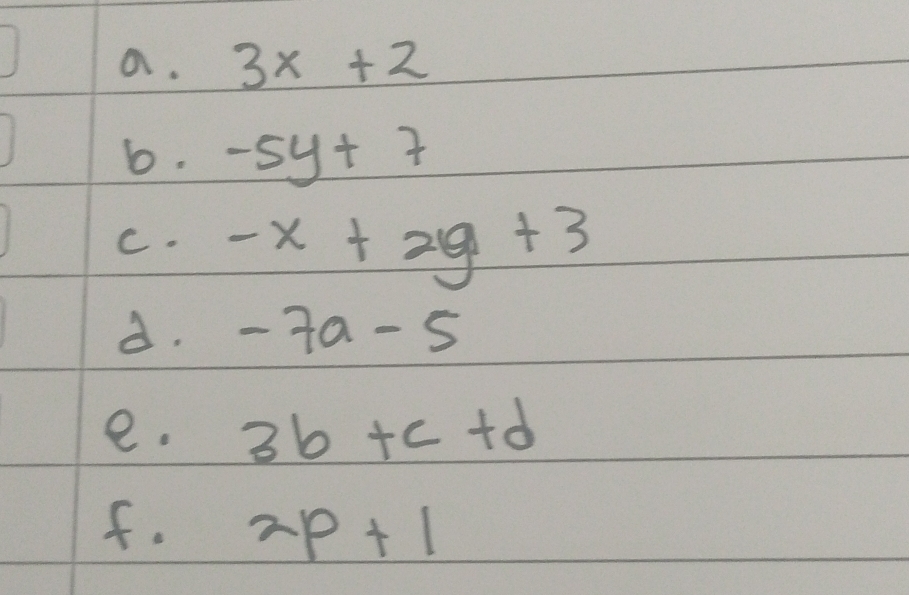 a. 3x + 2
b. -5y + 7
c. -x + 2y + 3
d. -7a - 5
e. 3b + c + d
f. 2p + 1